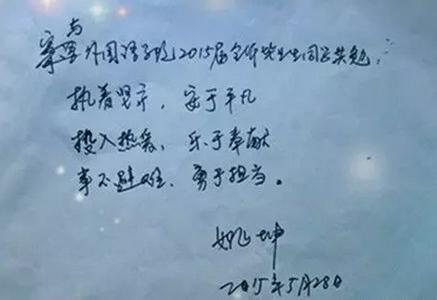 与
外国语学院2015届全体毕业生同学共勉:
执着坚守,安于平凡
投入热爱、乐于奉献
事不避难、勇于担当。
姚坤
2015年5月28日